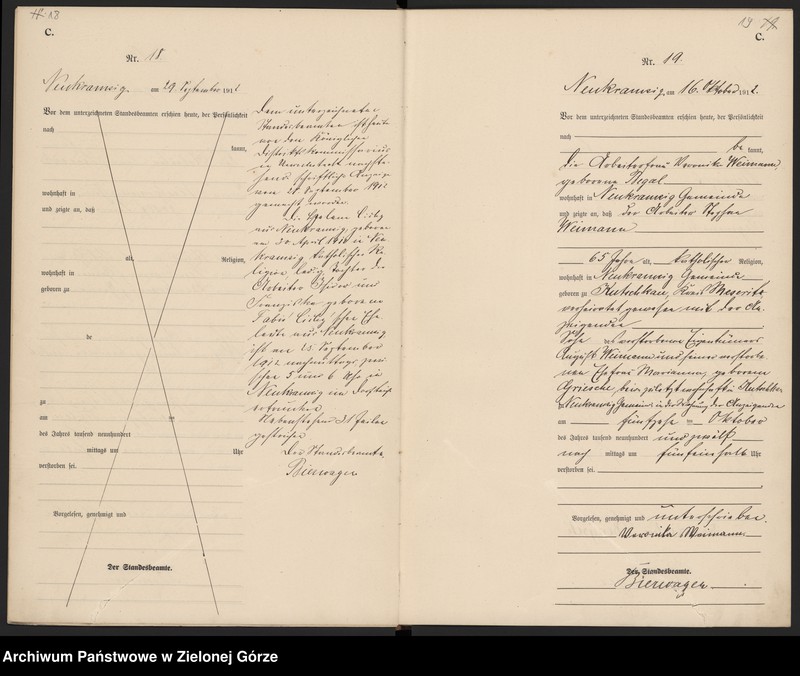 18
C.
Nr. 18.
Neukramzig am 29. September 1912
Vor dem unterzeichneten Standesbeamten erschien heute, der Persönlichkeit
nach
kannt,
wohnhaft in
und zeigte an, daß
alt, Religion,
wohnhaft in
geboren zu
be
zu
am ten
des Jahres tausend neunhundert
mittags um Uhr
verstorben sei.
Vorgelesen, genehmigt und
Der Standesbeamte.
Dem unterzeichneten
Standesbeamten ist heute
von dem Königlichen
Distriktskommissarius
in Unruhstadt nachste-
hende schriftliche Anzeige
vom 28. September 1912
gemacht worden:
Die Helene
aus Neukramzig, geboren
am 30. April in Neu
kramzig katholischer Re
ligion ledig Tochter des
Arbeiter und
Franziska geborene
schen Ehe
leute aus Neukramzig
ist am 25. September
1912 nachmittags zwi
schen 5 und 6 Uhr in
Neukramzig im
ertrunken
Nebenstehend 31 Zeilen
gestrichen
Der Standesbeamte.
Bierwagen
19
C.
Nr. 19.
Neukramzig am 16. Oktober 1912.
Vor dem unterzeichneten Standesbeamten erschien heute, der Persönlichkeit
nach
be kannt,
die Arbeiterfrau Veronika Weimann,
geborene Rega
wohnhaft in Neukramzig Gemeinde
und zeigte an, daß der Arbeiter Stephan
Weimann
65 Jahre alt, katholischer Religion,
wohnhaft in Neukramzig Gemeinde
geboren zu Kutschkau, Kreis Meseritz
verheiratet gewesen mit der An
zeigenden
Sohn des verstorbenen Eigentümers
August Weimann und seiner verstorbe
nen Ehefrau Marianna, geborenen
, beide zuletzt wohnhaft in Kutschkau
zu Neukramzig Gemeinde in der Wohnung der Anzeigenden
am fünfzehnten Oktober
des Jahres tausend neunhundert und zwölf
nach mittags um fünfeinhalb Uhr
verstorben sei.
Vorgelesen, genehmigt und unterschrieben.
Veronika Weimann
Der Standesbeamte.
Bierwagen
Archiwum Państwowe w Zielonej Górze